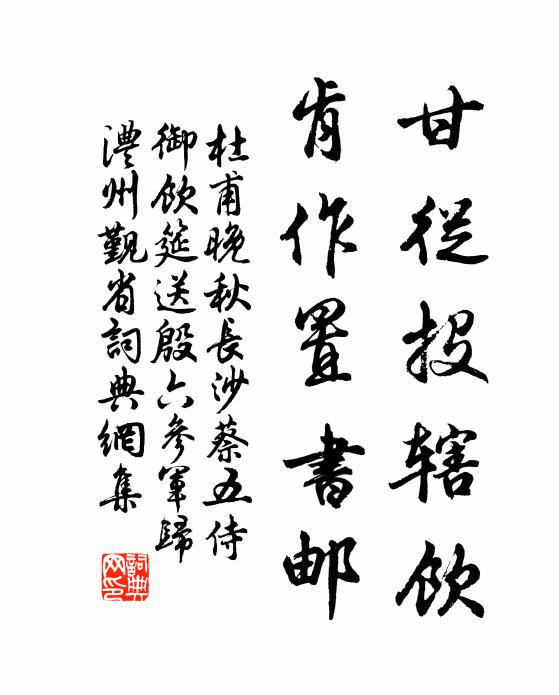 甘從投辖飲
肯作置書邮
杜甫晚秋長沙蔡五侍
御飲筵送殷六參軍歸
澧州覲省詞典網集
詞典
网印